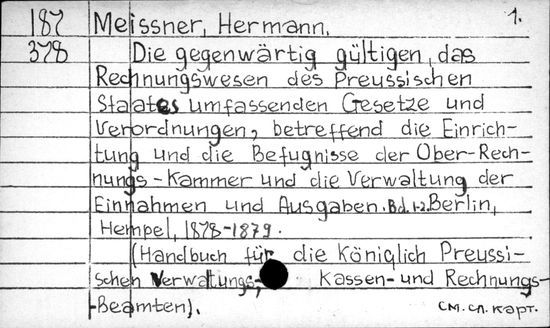 187 Meissner, Hermann. 1.
378 Die gegenwärtig gültigen, das
Rechnungswesen des Preussischen
Staates umfassenden Gesetze und
Verordnungen, betreffend die Einrich-
tung und die Befugnisse der Ober-Rech-
nungs-Kammer und die Verwaltung der
Einnahmen und Ausgaben. Bd. 1-2. Berlin,
Hempel, 1878-1879.
(Handbuch für die Königlich Preussi-
schen Verwaltungs-, Kassen- und Rechnungs-
-Beamten).
см. сл. карт.